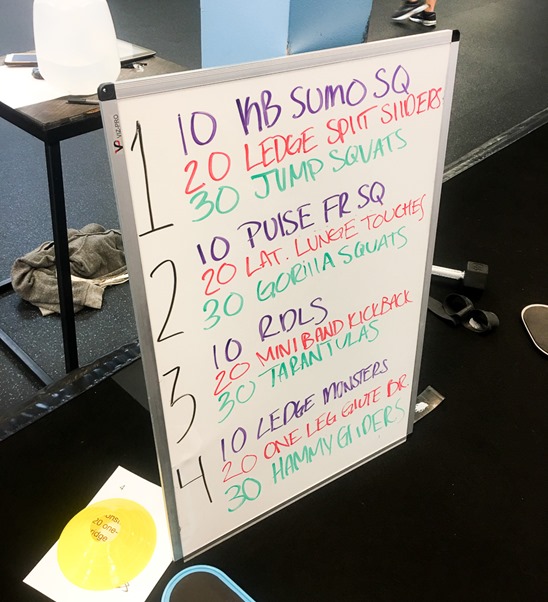 VIZ-PRO
1
10 KB SUMO SQ
20 LEDGE SPLIT SLIDERS
30 JUMP SQUATS
2
10 PULSE FR SQ
20 LAT. LUNGE TOUCHES
30 GORILLA SQUATS
3
10 RDLS
20 MINI BAND KICKBACK
30 TARANTULAS
4
10 LEDGE MONSTERS
20 ONE LEG GLUTE BR.
30 HAMMY GLIDERS
4
20 one-
ridge